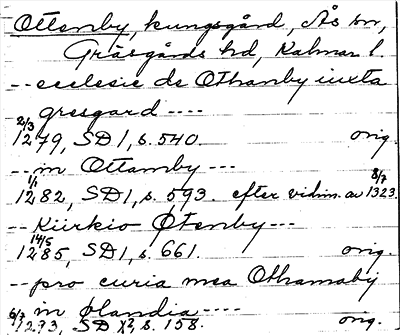 Ottenby, kungsgård, Ås sn,
Gräsgårds hd, Kalmar l.
-- ecclesie de Othanby iuxta
gresgard ----
2/3 1279, SD 1, s. 540. orig.
-- in Ottamby ---
1/1 1282, SD 1, s. 593. efter vidim. av 8/7 1323.
-- Kiirkio Øtenby ---
14/5 1285, SD 1, s. 661. orig.
-- pro curia mea Othamaby
in ølandia ----
6/7 1293, SD X2, s. 158. orig.